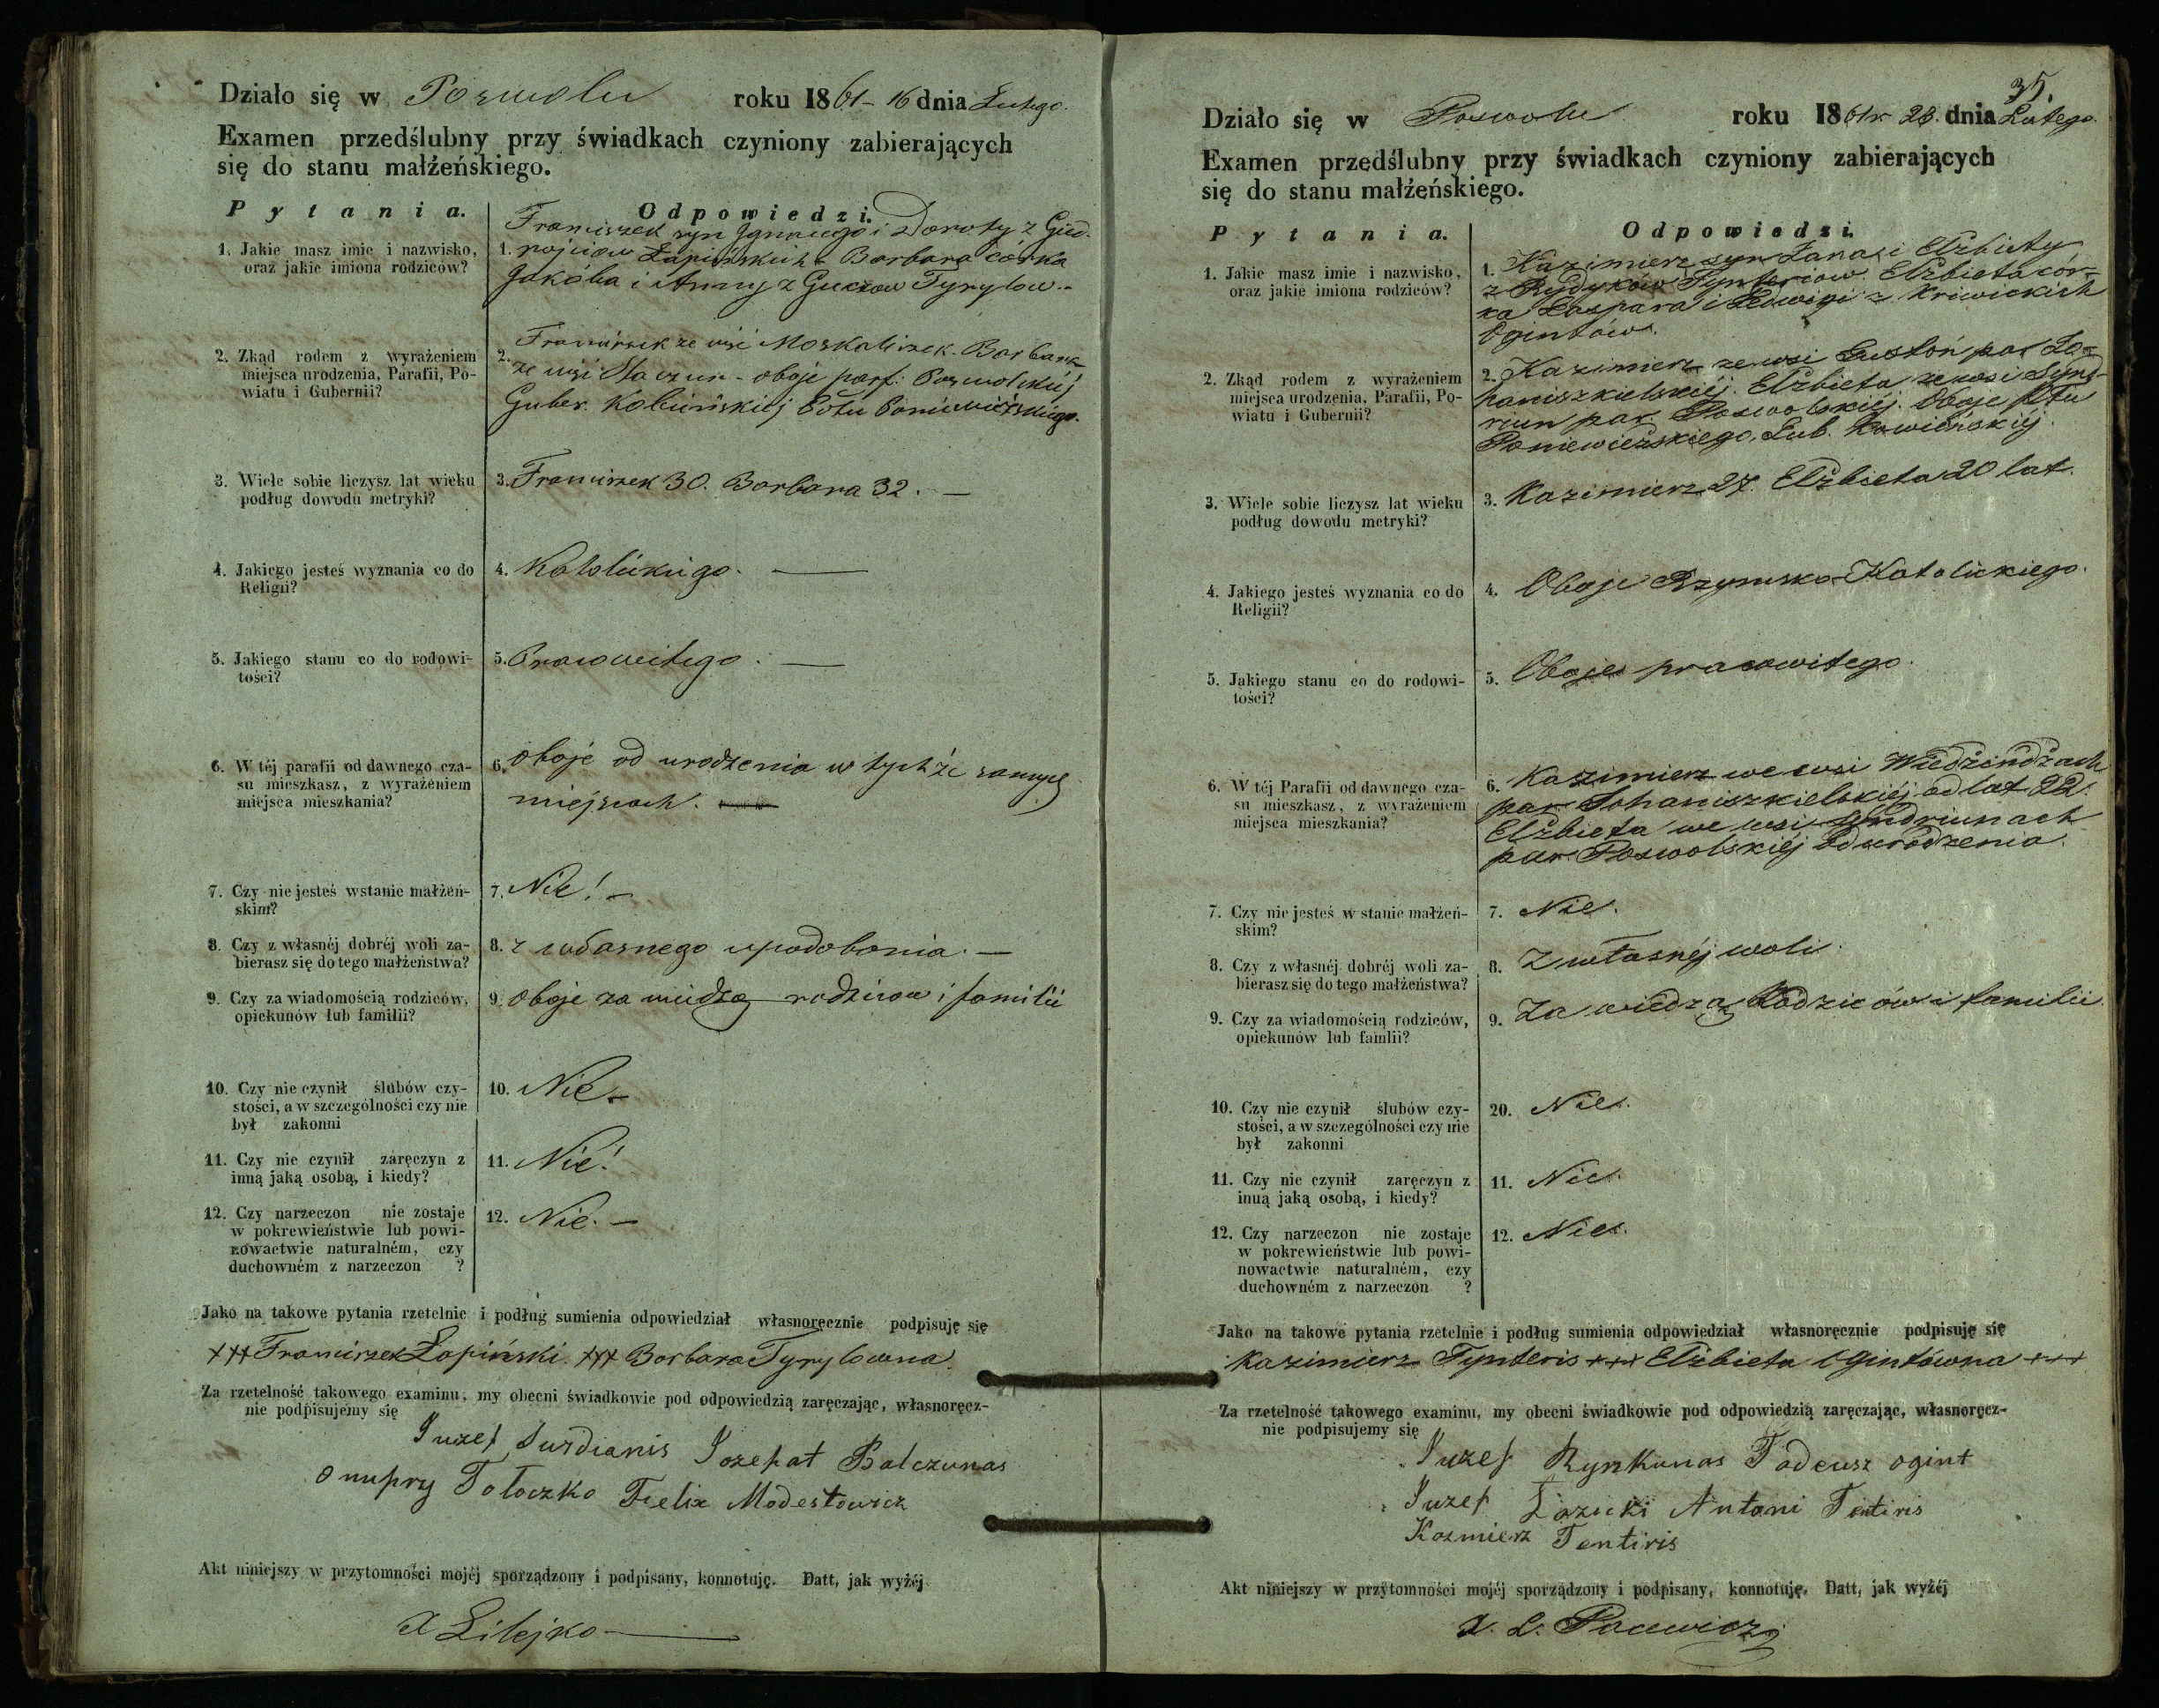 Działo się w Poswolu roku 1861 - 16 dnia Lutego.
Examen przedślubny przy świadkach czyniony zabierających
się do stanu małżeńskiego.
Pytania.
Odpowiedzi.
1. Jakie masz imie i nazwisko,
oraz jakie imiona rodziców?
Franciszek syn Ignacego i Doroty z Gied-
1. rojciow Łapińskich - Barbara córka
Jakóba i Anny z Guczow Tyrylow.-
2. Zkąd rodem z wyrażeniem
miejsca urodzenia, Parafii, Po-
wiatu i Gubernii?
Franciszek ze wsi Moskaliszek. Barbara
2. ze wsi - oboje parf: Poswolskiej
Guber. Kowieńskiej Pottu Poniewieżskiego.
3. Wiele sobie liczysz lat wieku
podług dowodu metryki?
3. Franciszek 30. Barbara 32. —
4. Jakiego jesteś wyznania co do
Religii?
4. Katolickiego. —
5. Jakiego stanu co do rodowi-
tości?
5. Pracowitego. —
6. W téj parafii od dawnego cza-
su mieszkasz, z wyrażeniem
miejsca mieszkania?
6. oboje od urodzenia w tychże samych
miejscach.
7. Czy nie jesteś w stanie małżeń-
skim?
7. Nie! -
8. Czy z własnéj dobréj woli za-
bierasz się do tego małżeństwa?
8. z własnego upodobania. —
9. Czy za wiadomością rodziców,
opiekunów lub familii?
9. oboje za wiedzą rodzicow i familii
10. Czy nie czynił ślubów czy-
stości, a w szczególności czy nie
był zakonni
10. Nie -
11. Czy nie czynił zaręczyn z
inną jaką osobą, i kiedy?
11. Nie!
12. Czy narzeczon nie zostaje
w pokrewieństwie lub powi-
nowactwie naturalném, czy
duchowném z narzeczon ?
12. Nie. -
Jako na takowe pytania rzetelnie i podług sumienia odpowiedział własnoręcznie podpisuję się
+++ Franciszek Łapiński. +++ Barbara Tyrylowna.
Za rzetelność takowego examinu, my obecni świadkowie pod odpowiedzią zaręczając, własnoręcz-
nie podpisujemy się
Juzef Jurdianis Jozefat Balczunas
Onupry Tołoczko Felix Modestowicz
Akt niniejszy w przytomności mojéj sporządzony i podpisany, konnotuję. Datt, jak wyżéj
X Lilejko
35.
Działo się w Poswolu roku 1861 r 28. dnia Lutego.
Examen przedślubny przy świadkach czyniony zabierających
się do stanu małżeńskiego.
Pytania.
Odpowiedzi.
1. Jakie masz imie i nazwisko,
oraz jakie imiona rodziców?
1. Kazimierz syn Janasi Elżbiety
z Rydyków Tynteriow. Elżbieta cór-
ka Kaspara i Jedwigi z Kriwickich
Ogintów.
2. Zkąd rodem z wyrażeniem
miejsca urodzenia, Parafii, Po-
wiatu i Gubernii?
2. Kazimierz ze wsi par Jo-
haniszkielskiéj. Elżbieta ze wsi Synd-
riun par Poswolskiéj. Oboje Pttu
Poniewieżskiego, Gub. Kowieńskiéj.
3. Wiele sobie liczysz lat wieku
podług dowodu metryki?
3. Kazimierz 27. Elżbieta 20 lat.
4. Jakiego jesteś wyznania co do
Religii?
4. Oboje Rzymsko-Katolickiego.
5. Jakiego stanu co do rodowi-
tości?
5. Oboje pracowitego.
6. W téj Parafii od dawnego cza-
su mieszkasz, z wyrażeniem
miejsca mieszkania?
6. Kazimierz we wsi
par Johaniszkielskiéj od lat 22.
Elżbieta we wsi Syndriunach
par. Poswolskiéj od urodzenia.
7. Czy nie jesteś w stanie małżeń-
skim?
7. Nie.
8. Czy z własnéj dobréj woli za-
bierasz się do tego małżeństwa?
8. Z własnéj woli.
9. Czy za wiadomością rodziców,
opiekunów lub famlii?
9. Za wiedzą Rodziców i familii.
10. Czy nie czynił ślubów czy-
stości, a w szczególności czy nie
był zakonni
20. Nie.
11. Czy nie czynił zaręczyn z
inną jaką osobą, i kiedy?
11. Nie.
12. Czy narzeczon nie zostaje
w pokrewieństwie lub powi-
nowactwie naturalném, czy
duchowném z narzeczon ?
12. Nie.
Jako na takowe pytania rzetelnie i podług sumienia odpowiedział własnoręcznie podpisuję się
Kazimierz Tynteris +++ Elżbieta Ogintówna +++
Za rzetelność takowego examinu, my obecni świadkowie pod odpowiedzią zaręczając, własnoręcz-
nie podpisujemy się
Juzef Rynkunas Tadeusz Ogint
Juzef Łazicki Antoni Tentiris
Kazmierz Tentiris
Akt niniejszy w przytomności mojéj sporządzony i podpisany, konnotuję. Datt, jak wyżéj
X. L. Pacewicz